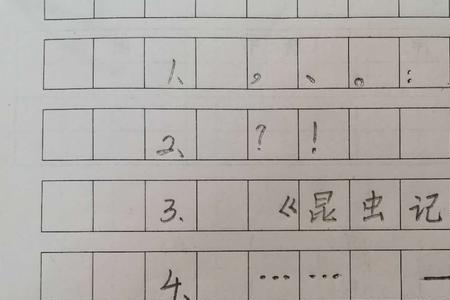 1、，、。：
2、？！
3、《昆虫记
4、……—